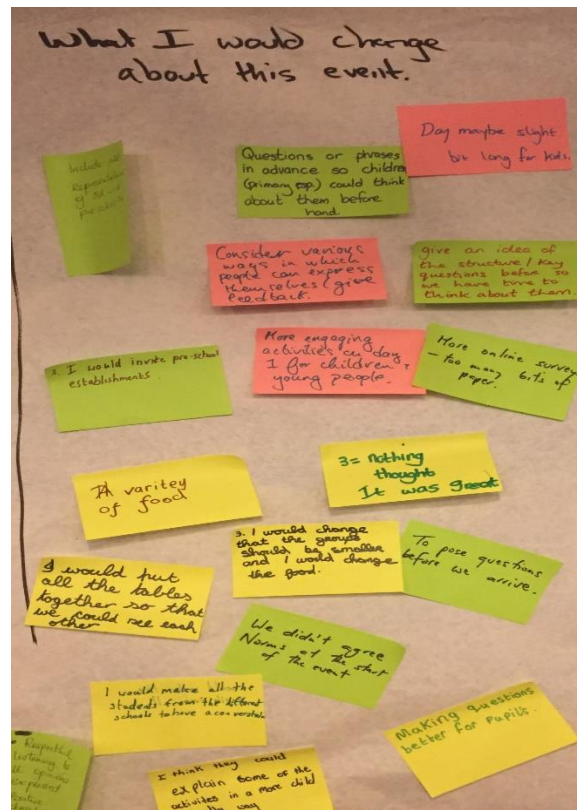 What I would change
about this event.
Day maybe slight
bit long for kids.
Include
Representation
of
Questions or phrases
in advance so children
(primary esp.) could think
about them before
hand.
Consider various
ways in which
people can express
themselves / give
feedback.
give an idea of
the structure / key
questions before so
we have time to
think about them.
3. I would invite pre-school
establishments.
More engaging
activities on day
1 for children &
young people.
More online survey
- too many bits of
paper.
A varitey
of food
3= nothing
thought
It was great
3. I would change
that the groups
should be smaller
and I would change
the food.
To pose questions
before we arrive.
I would put
all the tables
together so that
we could see each
other
We didn't agree
Norms at the start
of the event
I would make all the
students from the different
schools to have a conversation
Making questions
better for Pupils.
Respectful
listening to
all opinions
expressed
I think they could
explain some of the
activites in a more child
way